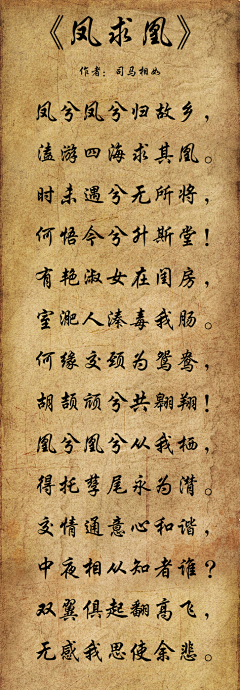 《凤求凰》
作者：司马相如
凤兮凤兮归故乡，
遨游四海求其凰。
时未遇兮无所将，
何悟今兮升斯堂！
有艳淑女在闺房，
室迩人遐毒我肠。
何缘交颈为鸳鸯，
胡颉颃兮共翱翔！
凰兮凰兮从我栖，
得托孳尾永为。
交情通意心和谐，
中夜相从知者谁？
双翼俱起翻高飞，
无感我思使余悲。